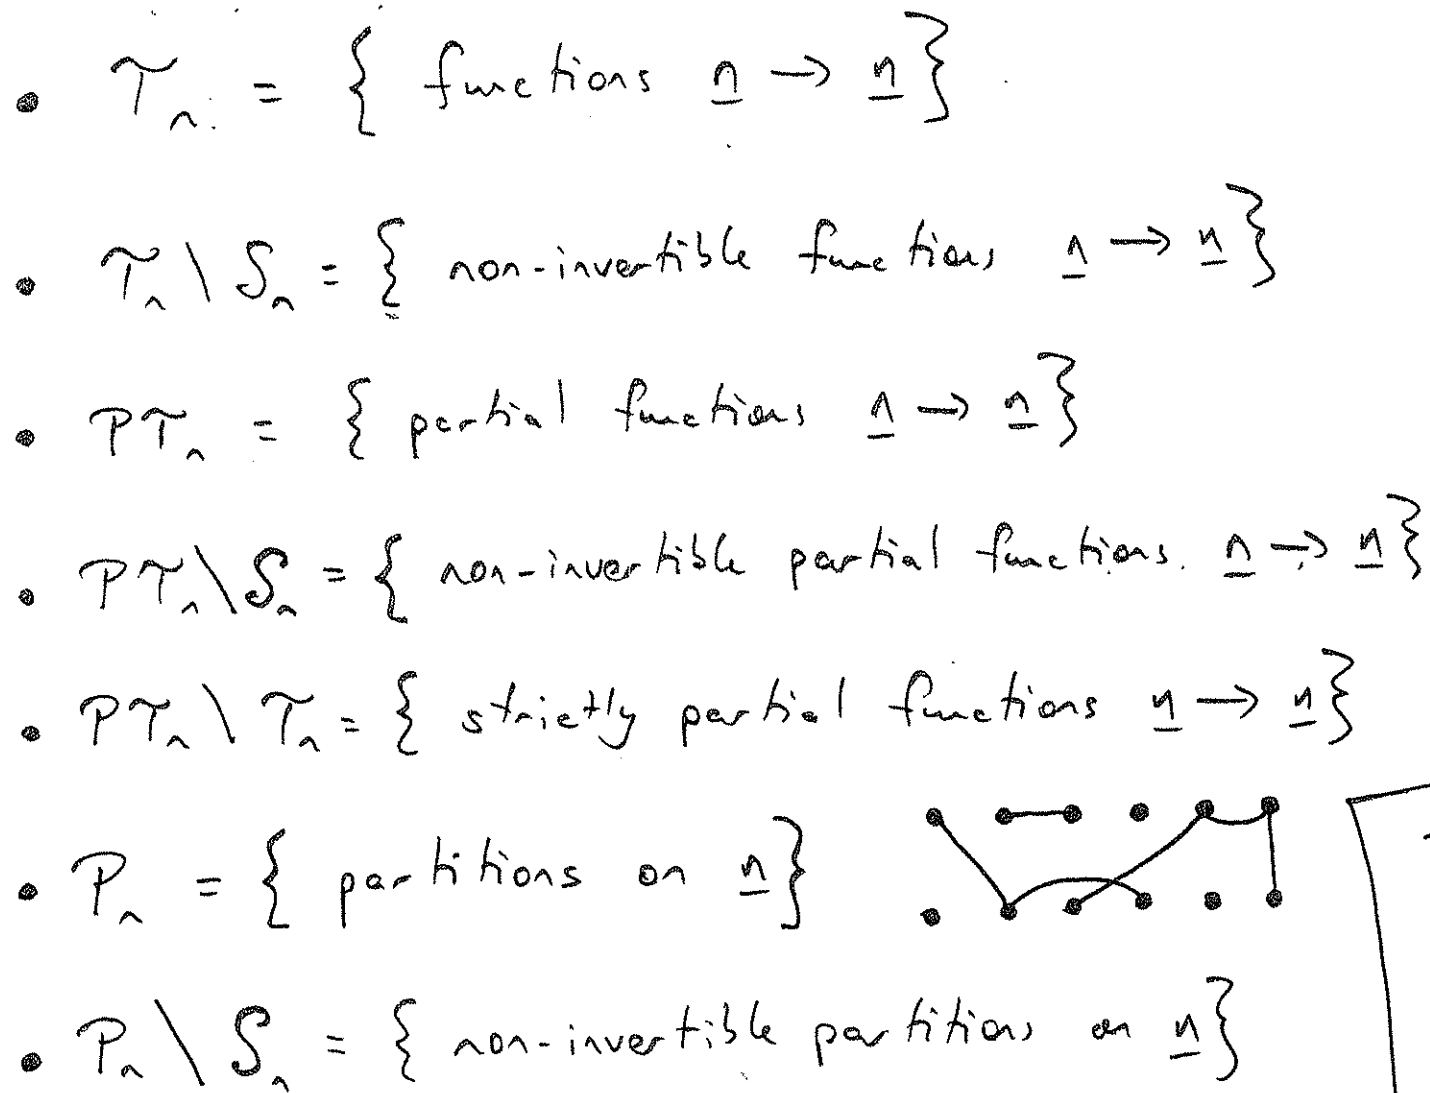 • 𝒯ₙ = { functions n̲ → n̲ }
• 𝒯ₙ \ 𝒮ₙ = { non-invertible functions n̲ → n̲ }
• 𝒫𝒯ₙ = { partial functions n̲ → n̲ }
• 𝒫𝒯ₙ \ 𝒮ₙ = { non-invertible partial functions n̲ → n̲ }
• 𝒫𝒯ₙ \ 𝒯ₙ = { strictly partial functions n̲ → n̲ }
• 𝒫ₙ = { partitions on n̲ }
• 𝒫ₙ \ 𝒮ₙ = { non-invertible partitions on n̲ }